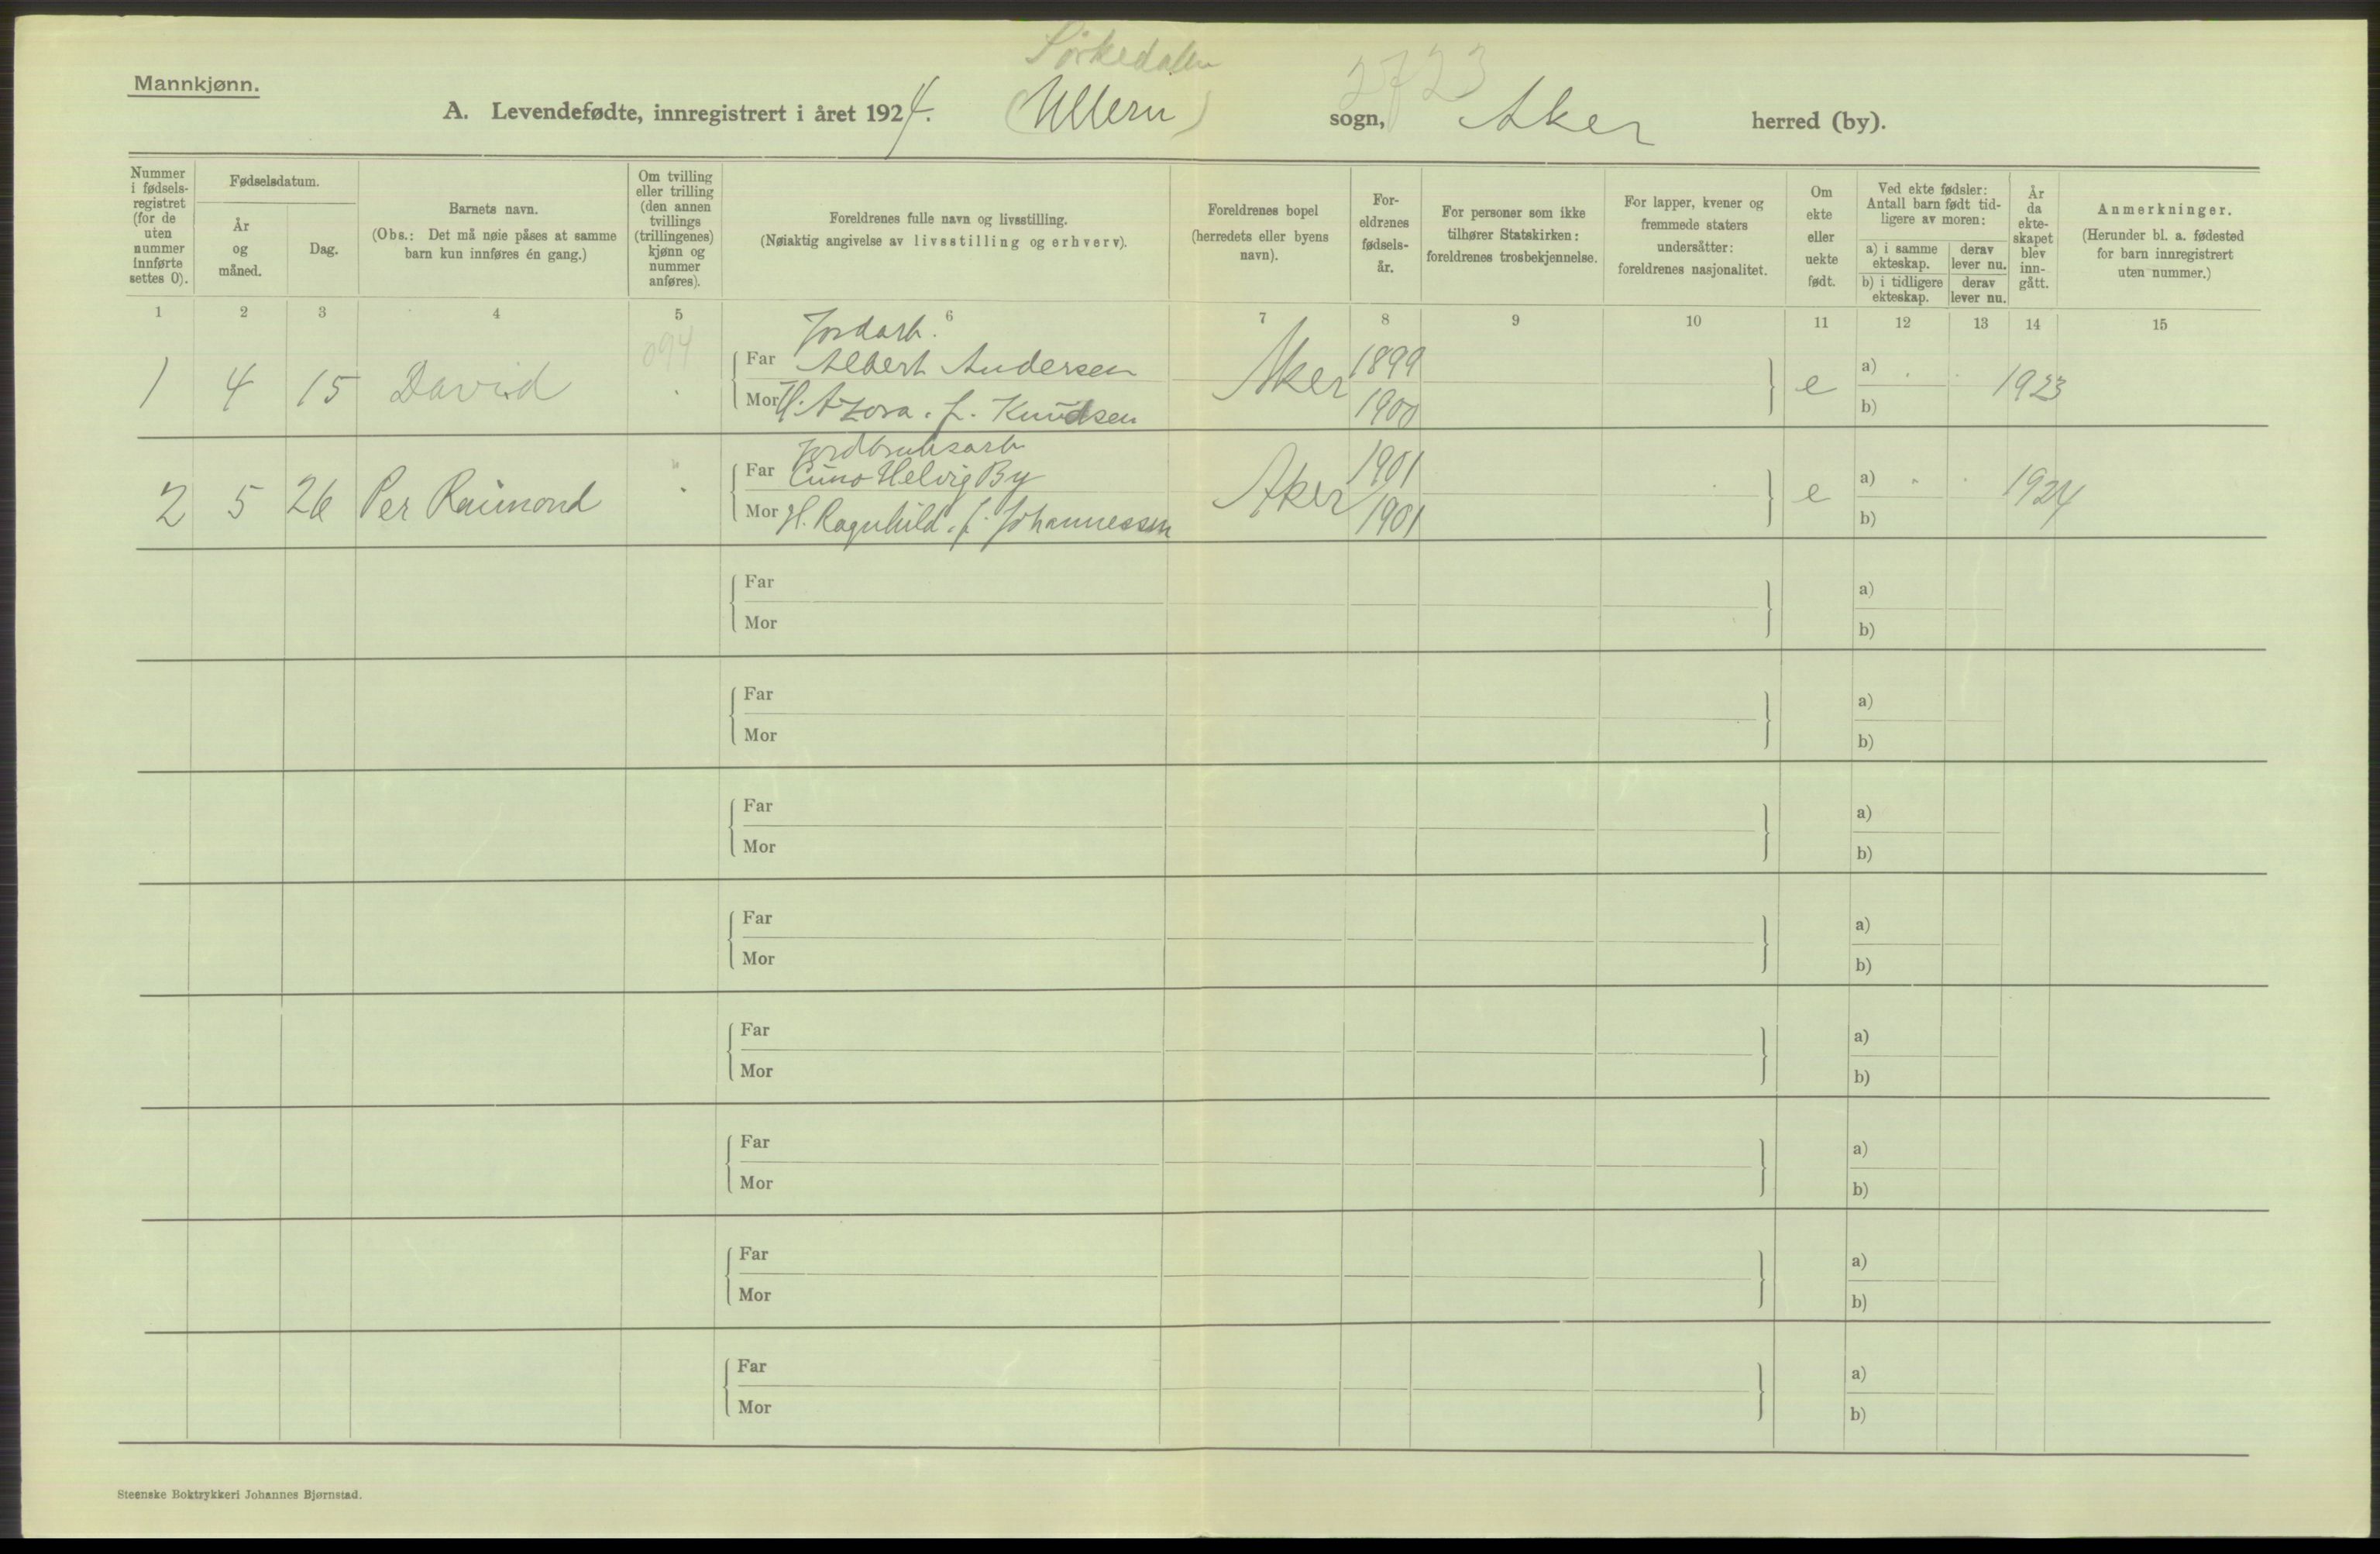 Sørkedalen
2723
Mannkjønn.
A. Levendefødte, innregistrert i året 1924. (Ullern) sogn, Aker herred (by).
Nummer i fødselsregistret (for de uten nummer innførte settes 0).
Fødselsdatum.
År og måned.
Dag.
Barnets navn.
(Obs.: Det må nøie påses at samme barn kun innføres én gang.)
Om tvilling eller trilling (den annen tvillings (trillingenes) kjønn og nummer anføres).
Foreldrenes fulle navn og livsstilling.
(Nøiaktig angivelse av livsstilling og erhverv).
Foreldrenes bopel (herredets eller byens navn).
Foreldrenes fødselsår.
For personer som ikke tilhører Statskirken: foreldrenes trosbekjennelse.
For lapper, kvener og fremmede staters undersåtter: foreldrenes nasjonalitet.
Om ekte eller uekte født.
Ved ekte fødsler: Antall barn født tidligere av moren:
a) i samme ekteskap.
derav lever nu.
b) i tidligere ekteskap.
derav lever nu.
År da ekteskapet blev inngått.
Anmerkninger.
(Herunder bl. a. fødested for barn innregistrert uten nummer.)
1 2 3 4 5 6 7 8 9 10 11 12 13 14 15
094
Jordarb.
1 4 15 David Far Albert Andersen Aker 1899 e a) 1923
Mor H. Azora. f. Knudsen 1900 b)
Jordbruksarb
2 5 26 Per Raimond Far Cuno Helvig By Aker 1901 e a) 1924
Mor H. Ragnhild. f. Johannessen 1901 b)
Far a)
Mor b)
Far a)
Mor b)
Far a)
Mor b)
Far a)
Mor b)
Far a)
Mor b)
Far a)
Mor b)
Far a)
Mor b)
Far a)
Mor b)
Steenske Boktrykkeri Johannes Bjørnstad.